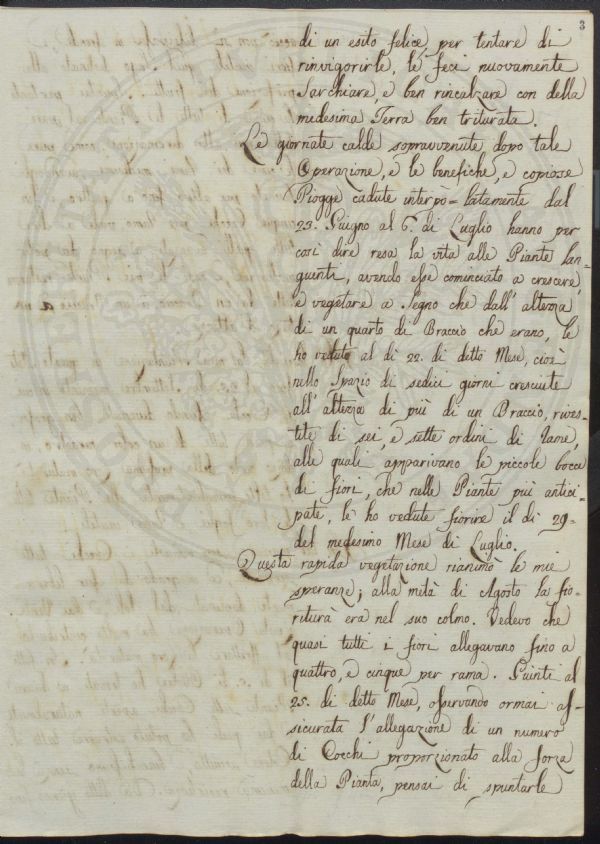 3
di un esito felice, per tentare di
rinvigorirle, le feci nuovamente
Sarchiare, e ben rincalzare con della
medesima Terra ben triturata.
Le giornate calde sopravvenute dopo tale
Operazione, e le benefiche, e copiose
Piogge cadute interpo=latamente dal
23. Giugno al 6. di Luglio hanno per
così dire resa la vita alle Piante lan-
guenti, avendo esse cominciato a crescere,
e vegetare a Segno che dall' altezza
di un quarto di Braccio che erano, le
ho vedute al dì 22. di detto Mese, cioè
nello Spazio di sedici giorni cresciute
all' altezza di più di un Braccio, rives-
tite di sei, e sette ordini di rame,
alle quali apparivano le piccole bocce
di fiori, che nelle Piante più antici-
pate, le ho vedute fiorire il dì 29.
del medesimo Mese di Luglio.
Questa rapida vegetazione rianimò le mie
speranze; alla mità di Agosto la fio-
ritura era nel suo colmo. Vedevo che
quasi tutti i fiori allegavano fino a
quattro, e cinque per rama. Giunti al
25. di detto Mese, osservando ormai as-
sicurata l'allegazione di un numero
di Cocchi proporzionato alla forza
della Pianta, pensai di spuntarle